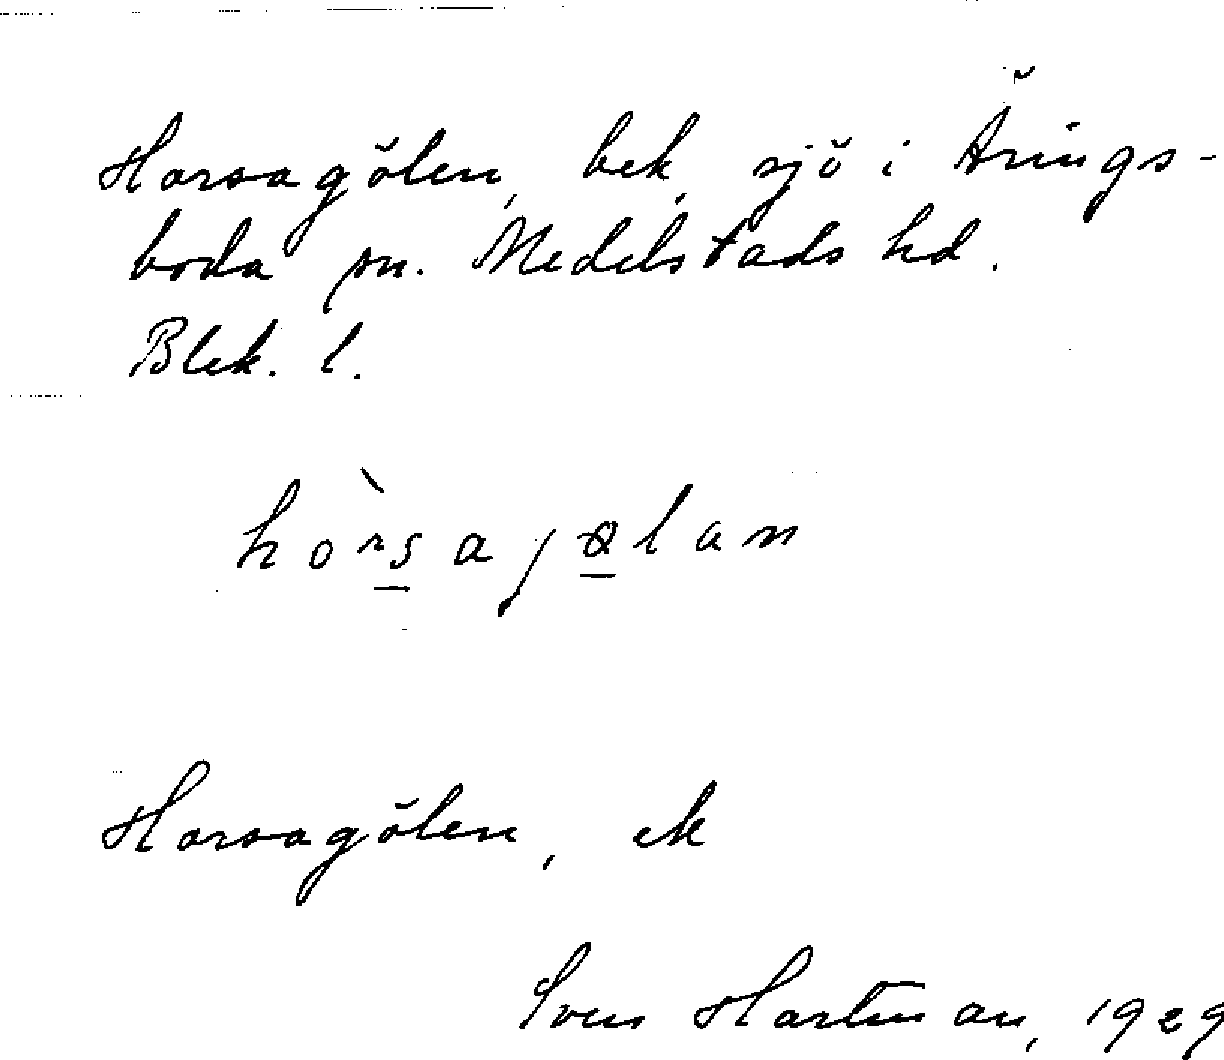 Horsagölen, bek. sjö i Ärings-
boda sn. Medelstads hd.
Blek. l.
Horsagölen, ek
Sven Hartman, 1929